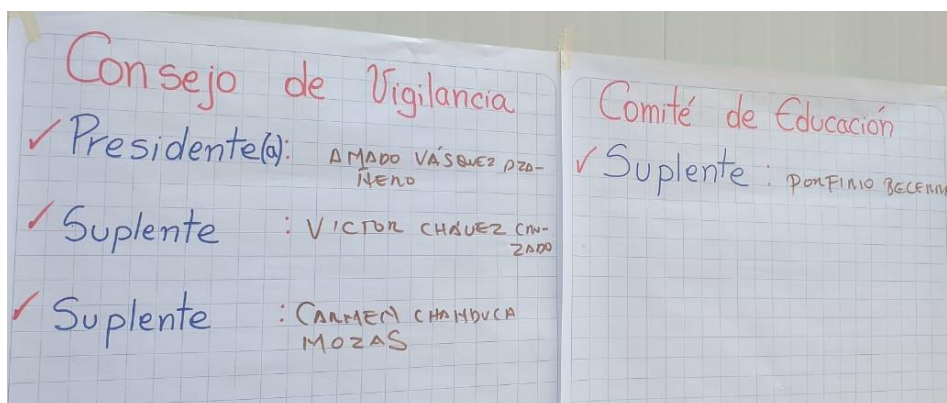 Consejo de Vigilancia
✓ Presidente(a): AMADO VÁSQUEZ
✓ Suplente : VICTOR CHÁVEZ CRU-
ZADO
✓ Suplente : CARMEN CHANDUCA
MOZAS
Comité de Educación
✓ Suplente : PORFIRIO